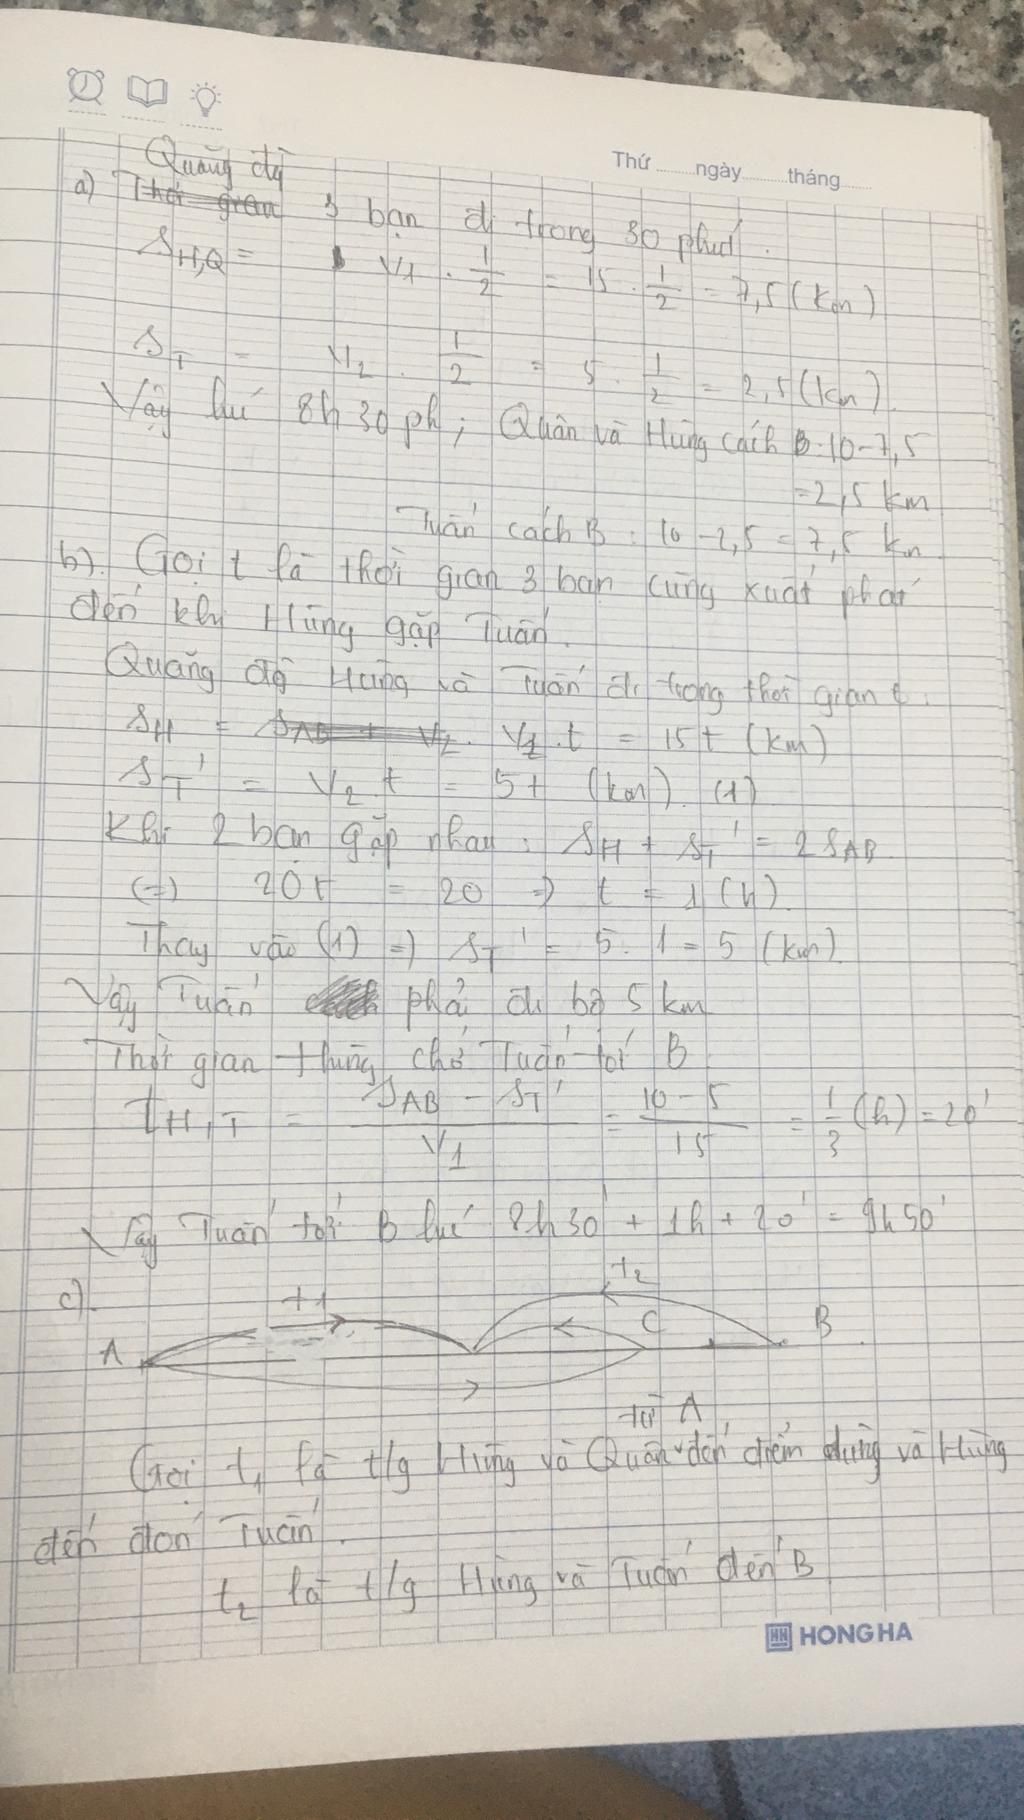 Thứ ........ ngày ........ tháng ........
Quãng đg
a) Thời gian 3 bạn đi trong 30 phút.
S_H,Q = V1 . 1/2 = 15 . 1/2 = 7,5 (km)
S_T = V2 . 1/2 = 5 . 1/2 = 2,5 (km).
Vậy lúc 8h30ph; Quân và Hùng cách B: 10-7,5
= 2,5 km
Tuấn cách B: 10-2,5 = 7,5 km
b). Gọi t là thời gian 3 bạn cùng xuất phát
đến khi Hùng gặp Tuấn.
Quãng đg Hùng và Tuấn đi trong thời gian t.
S_H = S_AB + V2. V1.t = 15t (km)
S_T' = V2.t = 5t (km). (1)
Khi 2 bạn gặp nhau: S_H + S_T' = 2S_AB
(=) 20t = 20 => t = 1 (h).
Thay vào (1) => S_T' = 5.1 = 5 (km).
Vậy Tuấn phải đi bộ 5 km
Thời gian Hùng chở Tuấn tới B
t_H,T = (S_AB - S_T')/V1 = (10-5)/15 = 1/3 (h) = 20'
Vậy Tuấn tới B lúc 8h30' + 1h + 20' = 9h50'
c). t1 t2
A C B
từ A
Gọi t1 là t/g Hùng và Quân đến điểm dừng và Hùng
đến đón Tuấn.
t2 là t/g Hùng và Tuấn đến B
HH HONG HA